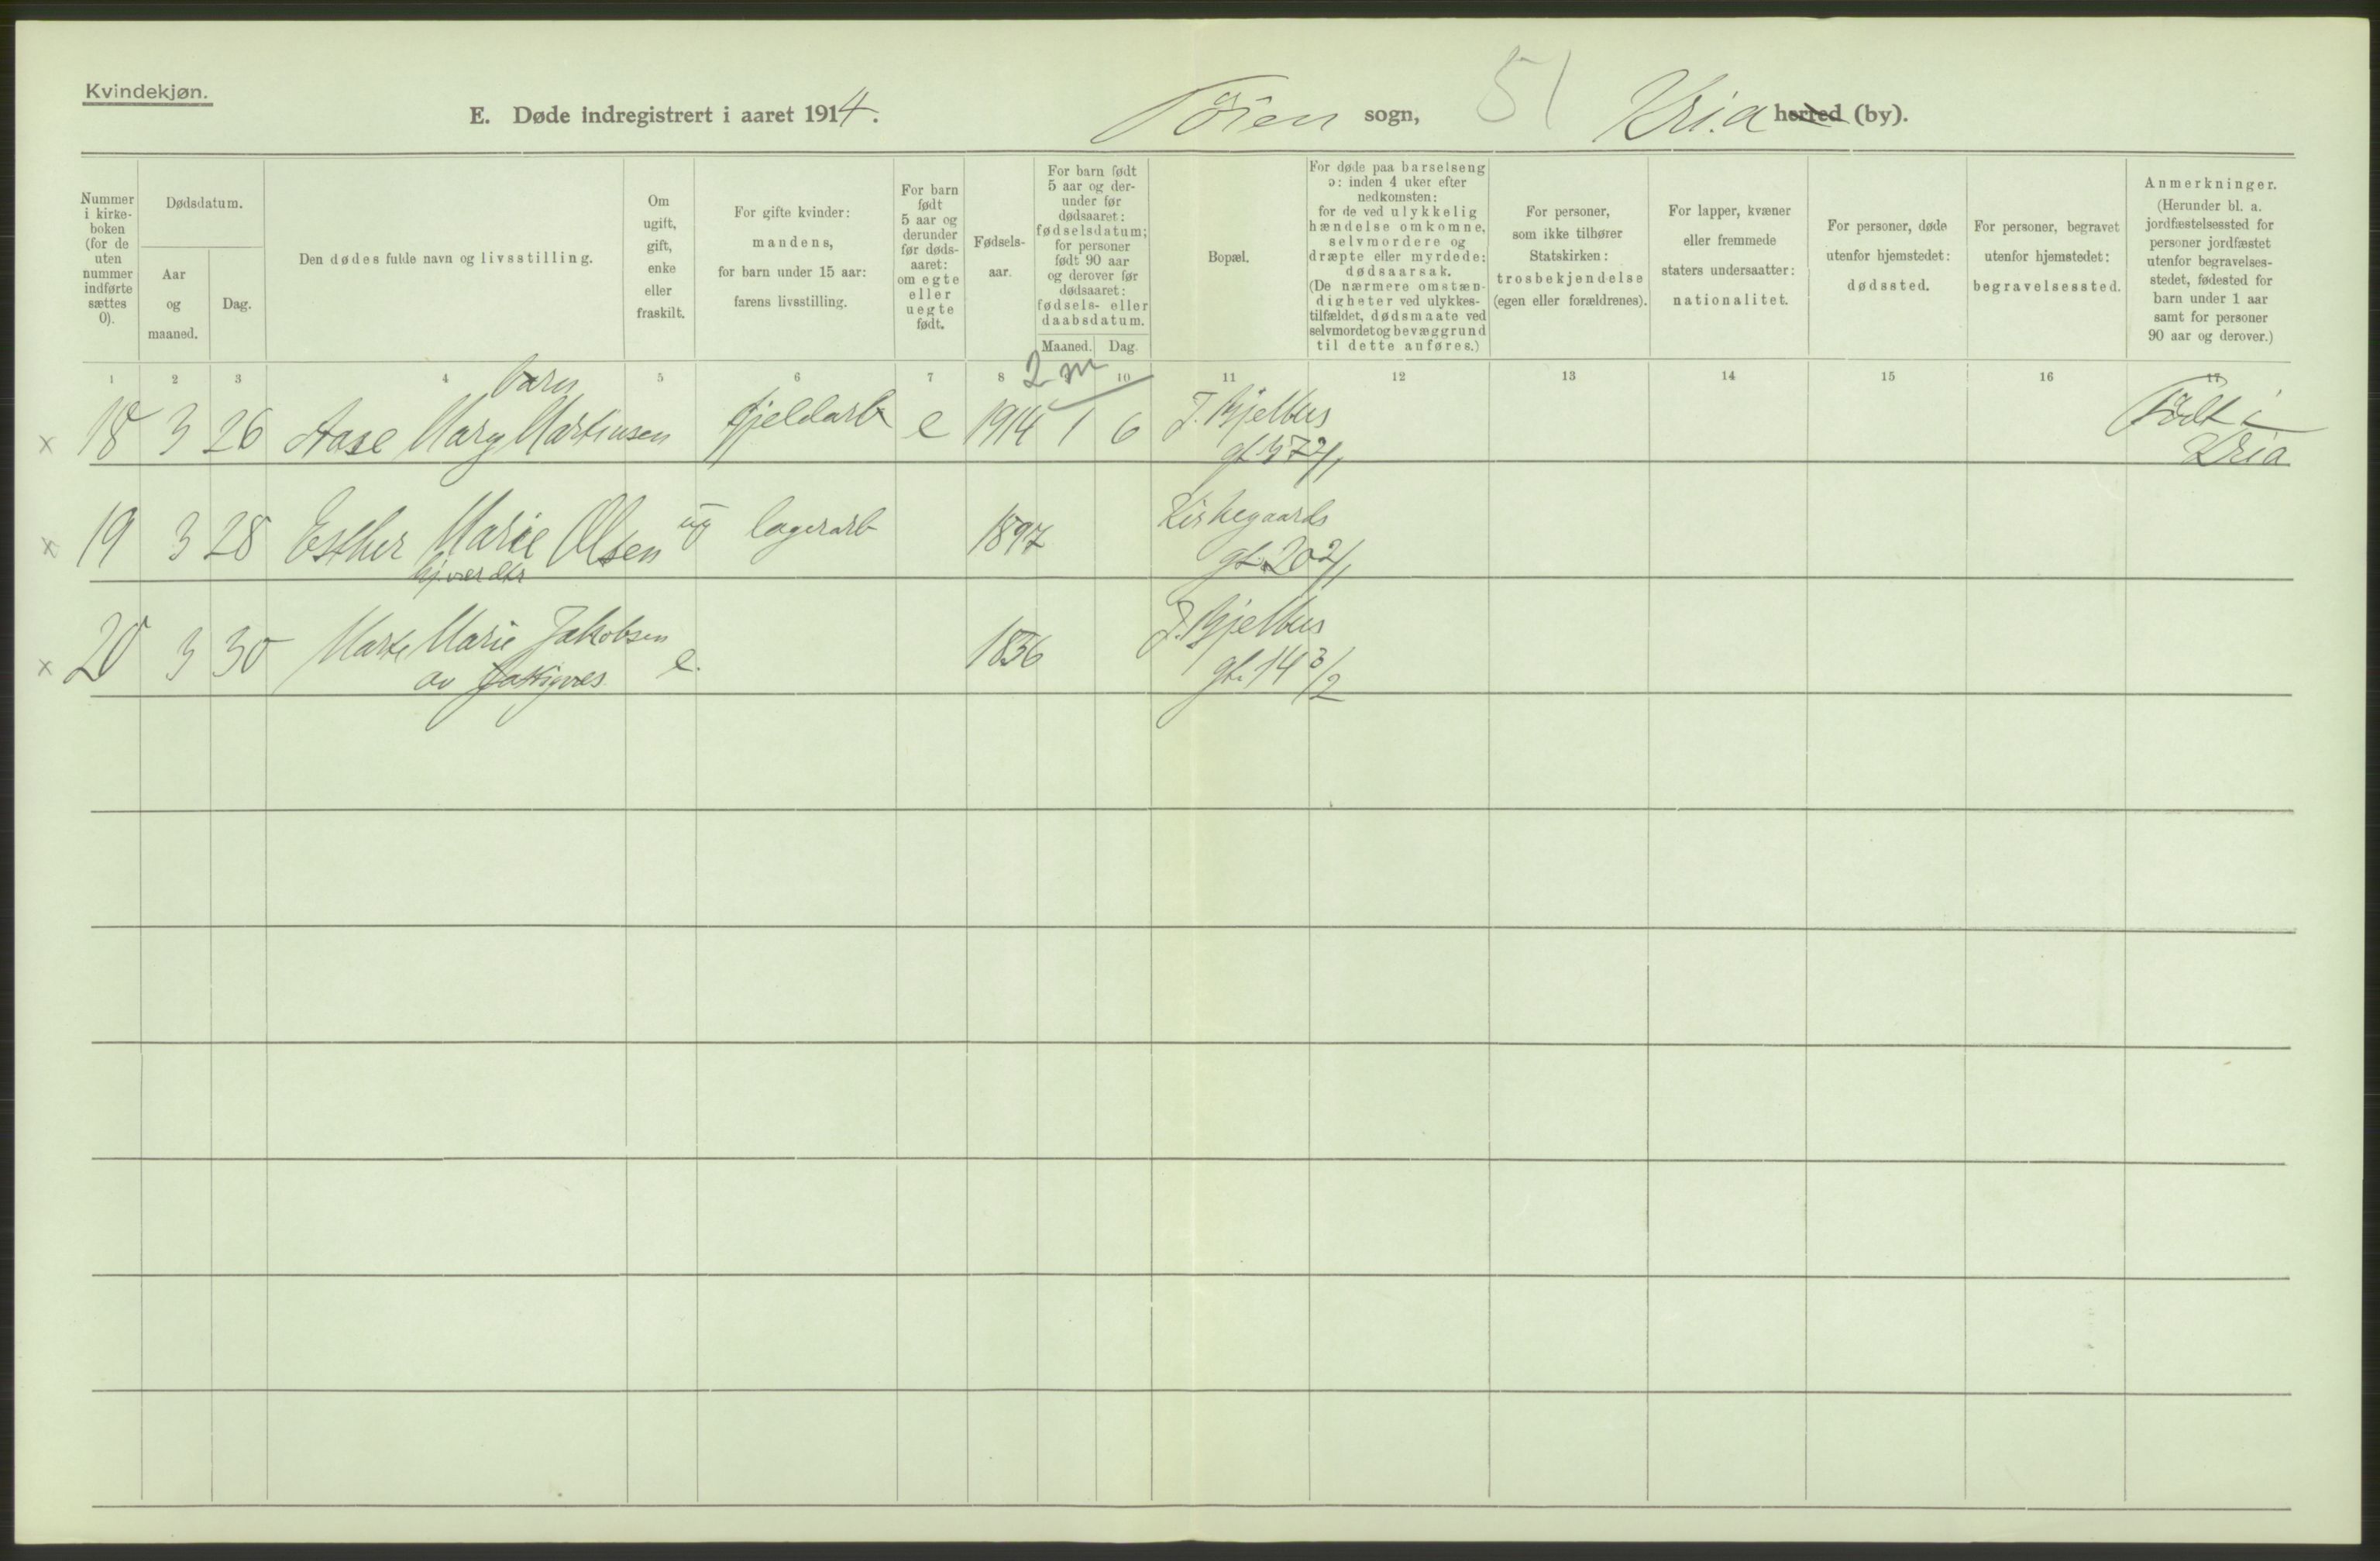 Kvindekjøn.
E. Døde indregistrert i aaret 1914. Tøien sogn, 51 Kria herred (by).
Nummer i kirke- boken (for de uten nummer indførte sættes 0).
Dødsdatum.
Aar og maaned.
Dag.
Den dødes fulde navn og livsstilling.
Om ugift, gift, enke eller fraskilt.
For gifte kvinder: mandens, for barn under 15 aar: farens livsstilling.
For barn født 5 aar og derunder før døds- aaret: om egte eller uegte født.
Fødsels- aar.
For barn født 5 aar og der- under før dødsaaret: fødselsdatum; for personer født 90 aar og derover før dødsaaret: fødsels- eller daabsdatum.
Maaned. Dag.
Bopæl.
For døde paa barselseng ɔ: inden 4 uker efter nedkomsten: for de ved ulykkelig hændelse omkomne, selvmordere og dræpte eller myrdede: dødsaarsak. (De nærmere omstæn- digheter ved ulykkes- tilfældet, dødsmaate ved selvmordet og bevæggrund til dette anføres.)
For personer, som ikke tilhører Statskirken: trosbekjendelse (egen eller forældrenes).
For lapper, kvæner eller fremmede staters undersaatter: nationalitet.
For personer, døde utenfor hjemstedet: dødssted.
For personer, begravet utenfor hjemstedet: begravelsessted.
Anmerkninger. (Herunder bl. a. jordfæstelsessted for personer jordfæstet utenfor begravelses- stedet, fødested for barn under 1 aar samt for personer 90 aar og derover.)
1 2 3 4 5 6 7 8 10 11 12 13 14 15 16 17
barn 2 m
x 18 3 26 Aase Mary Martinsen fjeldarb e 1914 1 6 J. Bjelkes Født i
gt 57 2/1 Kria
x 19 3 28 Esther Marie Olsen ug lagerarb 1897 Kirkegaards
hj vær dtr gt. 20 2/1
x 20 3 30 Marte Marie Jakobsen e. 1836 J. Bjelkes
av fattigvæs. gt. 14 3/2